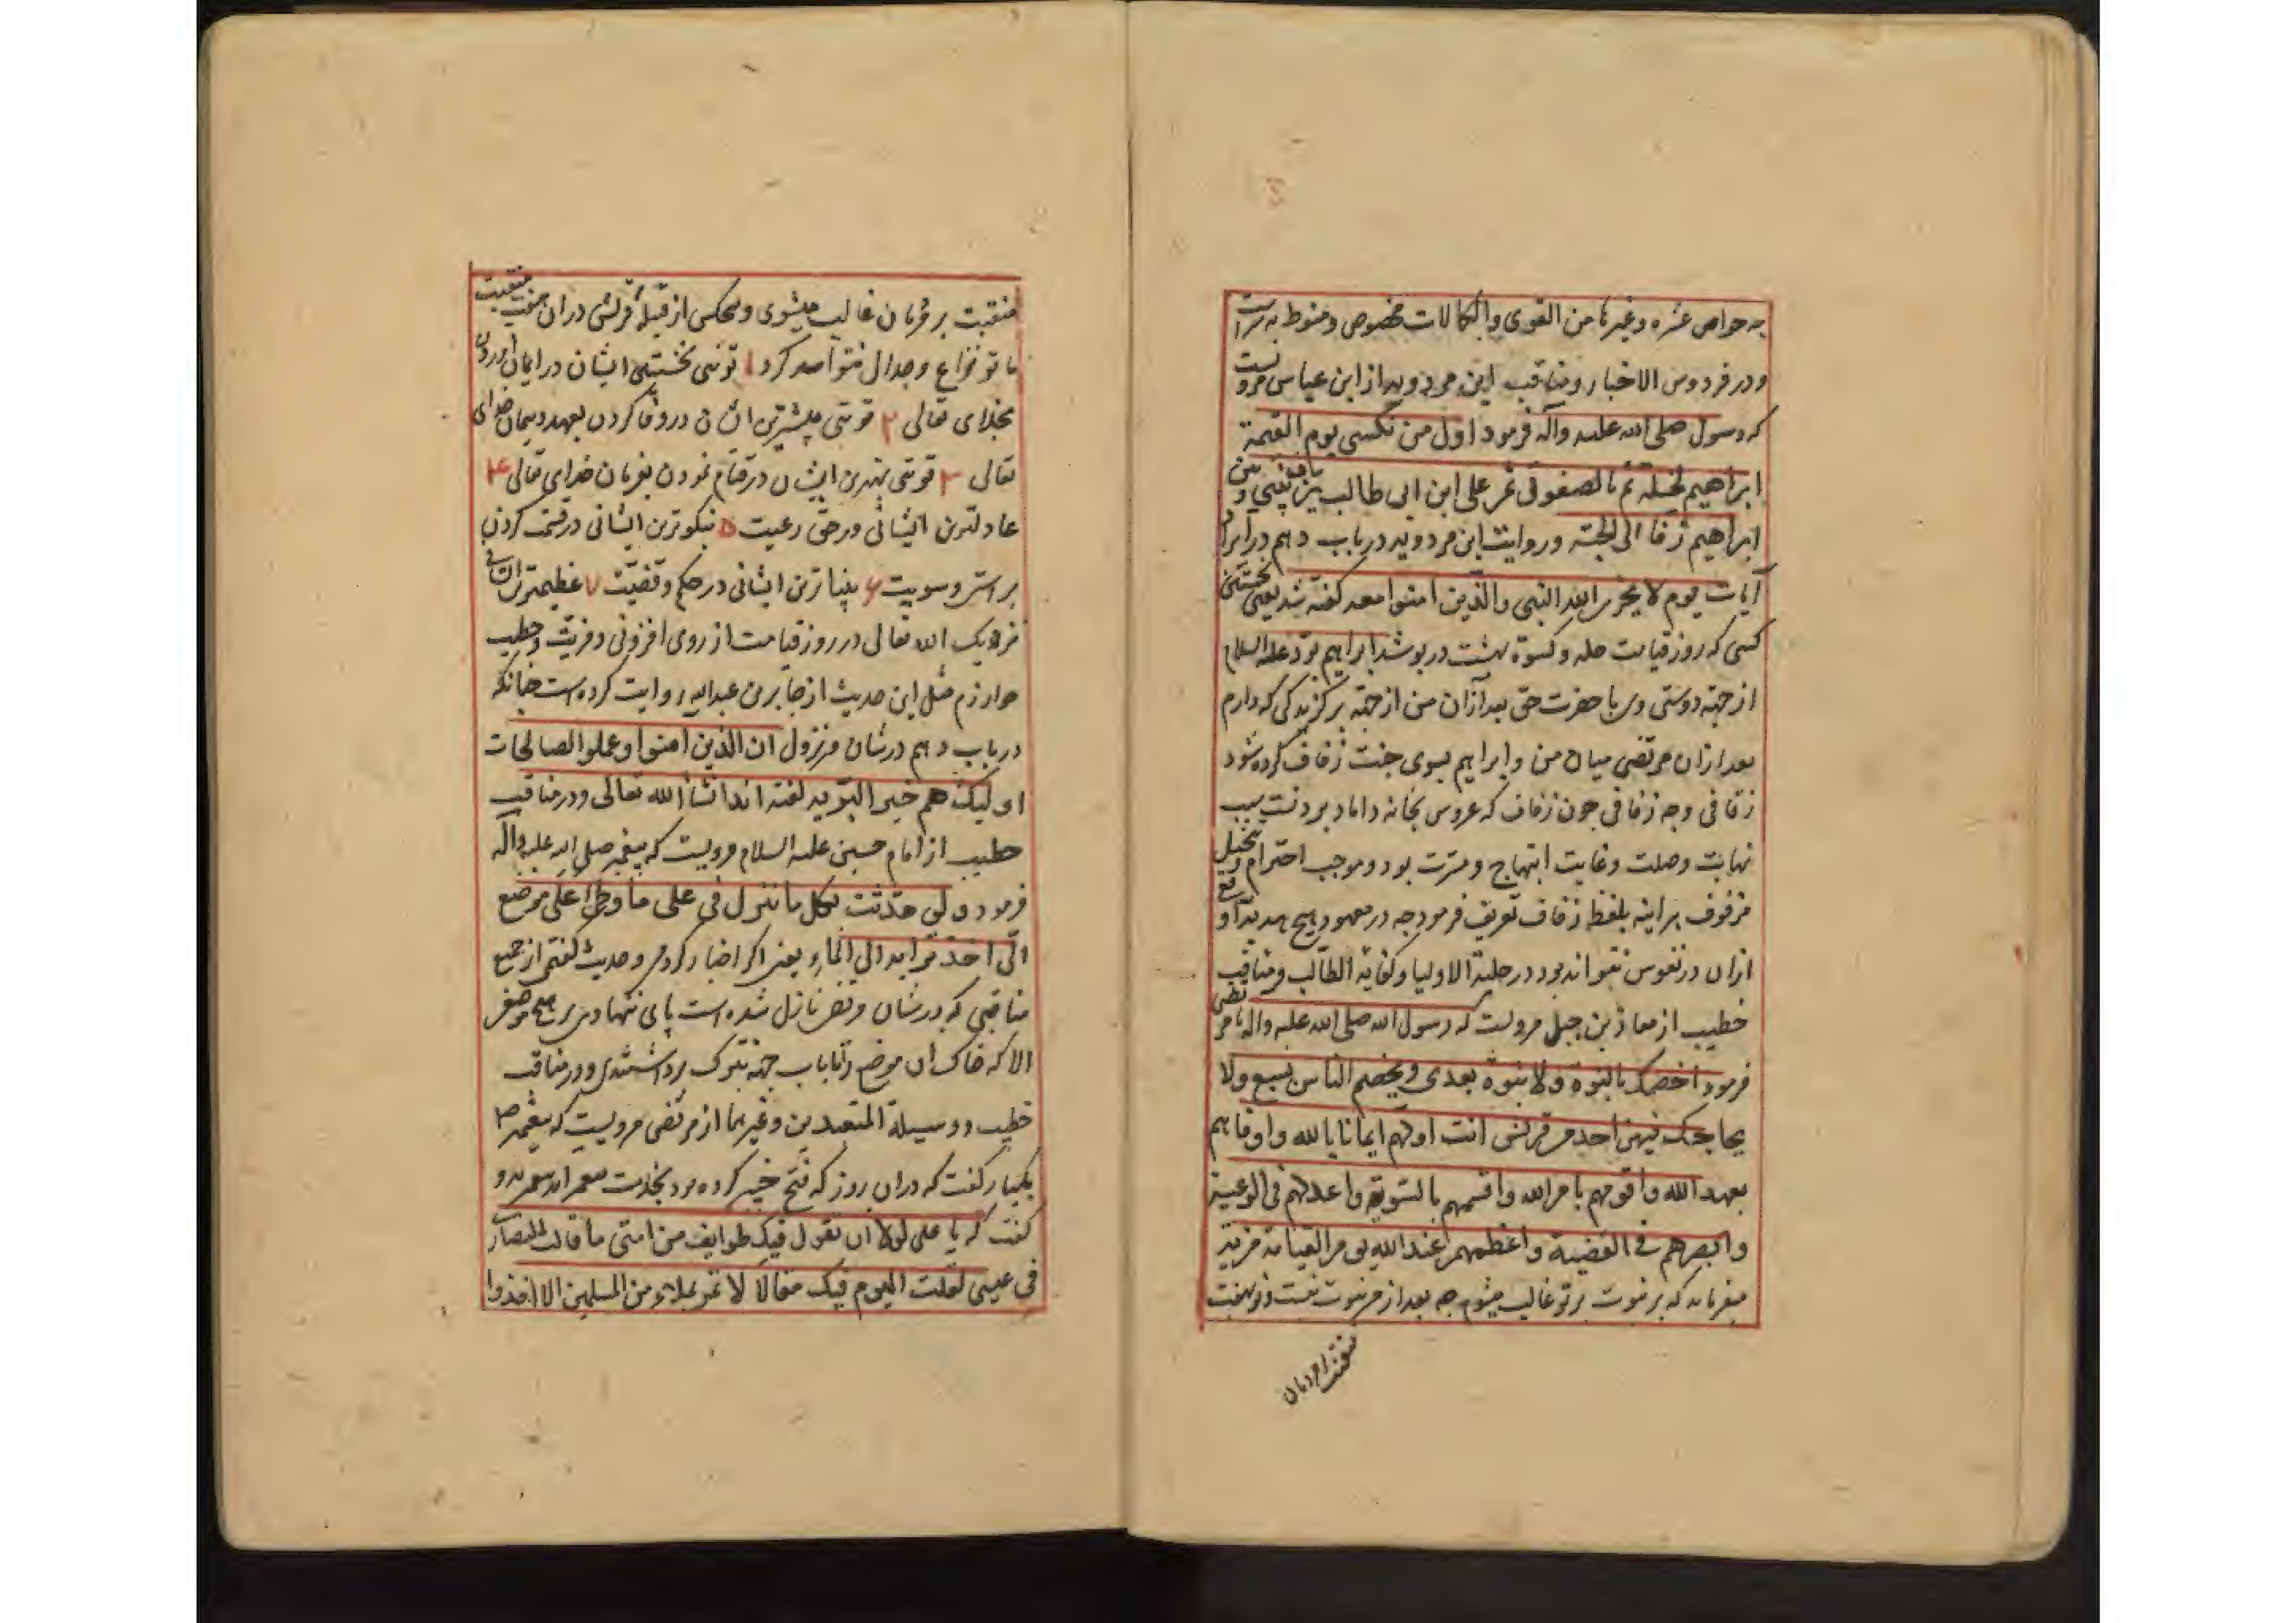 چه حواص عشره وغیرها من القوی والکمالات مخصوص و منوط به سرّاست
ودر فردوس الاخبار ومناقب ابن مردویه از ابن عباس مرویست
که رسول صلی الله علیه وآله فرمود اول من تکسی یوم القیمة
ابراهیم لخلته ثم انا لصفوتی ثم علی ابن ابی طالب یزف بینی و بین
ابراهیم زفا الی الجنة وروایت ابن مردویه در باب دهم درایراد
آیات یوم لا یخزی الله النبی والذین امنوا معه کفته شد یعنی نخستین
کسی که روز قیامت حله وکسوة بهشت درپوشد ابراهیم بود علیه السلام
از جهة دوستی وی با حضرت حق بعد ازان من از جهة برکزیدکی که دارم
بعد ازان مرتضی میان من وابراهیم بسوی جنت زفاف کرده شود
زفافی وچه زفافی چون زفاف که عروس بخانه داماد بردنست سبب
نهایت وصلت وغایت ابتهاج ومسرت بود وموجب احترام وتبجیل
مزفوف هراینه بلفظ زفاف تعریف فرمود چه درمعهود هیچ هدیه ارفع
ازان درنفوس نتواند بود در حلیة الاولیا وکفایة الطالب ومناقب
خطیب از معاذ بن جبل مرویست که رسول الله صلی الله علیه واله با مرتضی
فرمود اخصمک بالنبوة ولا نبوة بعدی وتخصم الناس بسبع ولا
یحاجک فیهن احد من قریش انت اولهم ایمانا بالله واوفاهم
بعهد الله واقومهم بامر الله واقسمهم بالسویة واعدلهم فی الرعیة
وابصرهم فی القضیة واعظمهم عند الله یوم القیامة مزیة
میفرماید که بر نبوت بر تو غالب میشوم چه بعد از من نبوت نیست وتو بهفت
منقبت بر مردمان
منقبت بر مردمان غالب میشوی وهیچکس از قبیله قریش دران هفت منقبت
با تو نزاع وجدال نتواند کرد ۱ توئی نخستین ایشان درایمان آوردن
بخدای تعالی ۲ توئی بیشترین ایشان دروفا کردن بعهد وپیمان خدای
تعالی ۳ توئی بهترین ایشان درقیام نمودن بفرمان خدای تعالی ۴
عادلترین ایشانی در حق رعیت ۵ نیکوترین ایشانی درقسمت کردن
براستی وسویت ۶ بیناترین ایشانی درحکم وقضیت ۷ عظیمترین ایشانی
نزدیک الله تعالی در روز قیامت از روی افزونی ومزیت وخطیب
خوارزم مثل این حدیث از جابر بن عبدالله روایت کرده است چنانکه
در باب دهم درشان نزول ان الذین امنوا وعملوا الصالحات
اولیک هم خیر البریه کفته اند انشا الله تعالی ودر مناقب
خطیب از امام حسین علیه السلام مرویست که پیغمبر صلی الله علیه وآله
فرمود و لو حدثت بکل ما نزل فی علی ما وطئ علی موضع
الّا اخذ ترابه الی الماء یعنی اکر اخبار کردمی وحدیث کفتمی از جمیع
مناقبی که درشان مرتضی نازل شده است پای ننهادی بر هیچ موضعی
الا که خاک ان موضع را تا باب جهة تبرک برداشتندی ودر مناقب
خطیب ووسیلة المتعبدین وغیرهما از مرتضی مرویست که پیغمبر ص
یکبار کفت که دران روز که فتح خیبر کرده بود بخدمت پیغمبر
کفت که یا علی لولا ان تقول فیک طوایف من امتی ما قالت النصاری
فی عیسی لقلت الیوم فیک مقالا لا تمر بملاء من المسلمین الا اخذوا